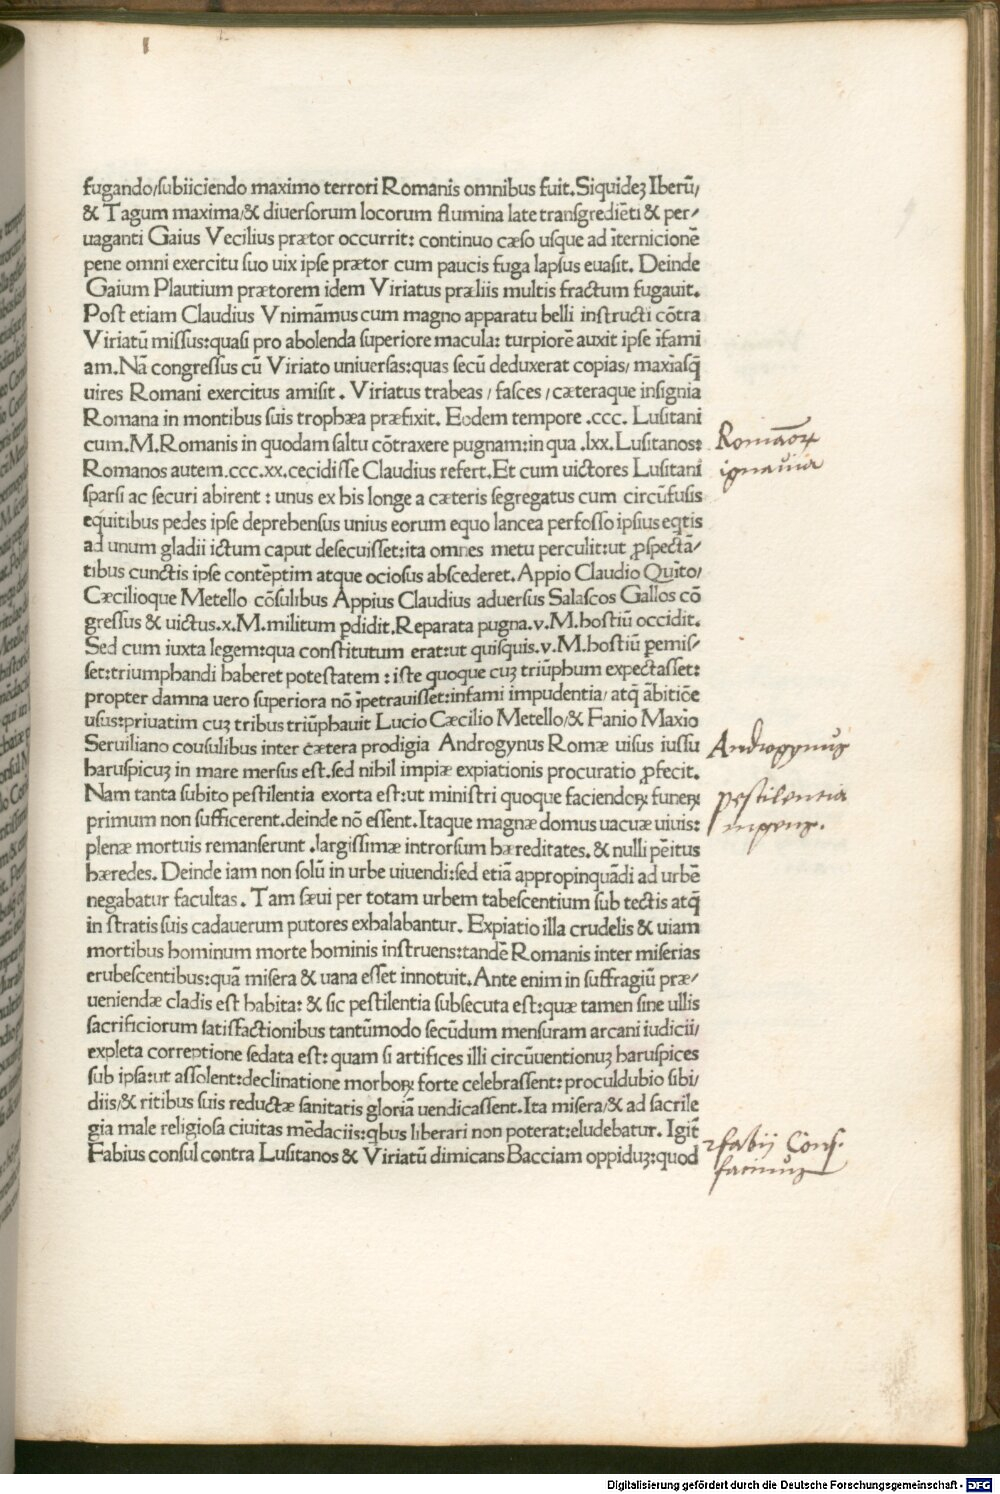 fugando/subiiciendo maximo terrori Romanis omnibus fuit.Siquideꝫ Iberū/
& Tagum maxima/& diuersorum locorum flumina late transgrediēti & per⸗
uaganti Gaius Vecilius prætor occurrit: continuo cæso usque ad īternicionē
pene omni exercitu suo uix ipse prætor cum paucis fuga lapsus euasit. Deinde
Gaium Plautium prætorem idem Viriatus præliis multis fractum fugauit.
Post etiam Claudius Vnimāmus cum magno apparatu belli instructi cōtra
Viriatū missus:quasi pro abolenda superiore macula: turpiorē auxit ipse īfami
am.Nā congressus cū Viriato uniuersas:quas secū deduxerat copias/ maxīasq̄
uires Romani exercitus amisit . Viriatus trabeas / fasces / cæteraque insignia
Romana in montibus suis trophæa præfixit. Eodem tempore .ccc. Lusitani
cum.M.Romanis in quodam saltu cōtraxere pugnam:in qua .lxx.Lusitanos:
Romanos autem.ccc.xx.cecidisse Claudius refert.Et cum uictores Lusitani
sparsi ac securi abirent : unus ex his longe a cæteris segregatus cum circūfusis
equitibus pedes ipse deprehensus unius eorum equo lancea perfosso ipsius eq̄tis
ad unum gladii ictum caput desecuisset:ita omnes metu perculit:ut ꝓspectā⸗
tibus cunctis ipse contēptim atque ociosus abscederet.Appio Claudio Quīto/
Cæcilioque Metello cōsulibus Appius Claudius aduersus Salascos Gallos cō
gressus & uictus.x.M.militum ꝑdidit.Reparata pugna.v.M.hostiū occidit.
Sed cum iuxta legem:qua constitutum erat:ut quisquis.v.M.hostiū ꝑemis⸗
set:triumphandi haberet potestatem : iste quoque cuꝫ triūphum expectasset:
propter damna uero superiora nō īpetrauisset:infami impudentia/ atq̄ ābitiōe
usus:priuatim cuꝫ tribus triūphauit Lucio Cæcilio Metello/& Fanio Maxīo
Seruiliano cousulibus inter cætera prodigia Androgynus Romæ uisus iussu
haruspicuꝫ in mare mersus est.sed nihil impiæ expiationis procuratio ꝓfecit.
Nam tanta subito pestilentia exorta est:ut ministri quoque faciendoꝝ funeꝝ
primum non sufficerent.deinde nō essent.Itaque magnæ domus uacuæ uiuis:
plenæ mortuis remanserunt .largissimæ introrsum hæreditates.& nulli pēitus
hæredes. Deinde iam non solū in urbe uiuendi:sed etiā appropinquādi ad urbē
negabatur facultas . Tam sæui per totam urbem tabescentium sub tectis atq̄
in stratis suis cadauerum putores exhalabantur. Expiatio illa crudelis & uiam
mortibus hominum morte hominis instruens:tandē Romanis inter miserias
erubescentibus:quā misera & uana esset innotuit.Ante enim in suffragiū præ⸗
ueniendæ cladis est habita: & sic pestilentia subsecuta est:quæ tamen sine ullis
sacrificiorum satisfactionibus tantūmodo secūdum mensuram arcani iudicii/
expleta correptione sedata est: quam si artifices illi circūuentionuꝫ haruspices
sub ipsa:ut assolent:declinatione morboꝝ forte celebrassent: proculdubio sibi/
diis/& ritibus suis reductæ sanitatis gloriā uendicassent.Ita misera/& ad sacrile
gia male religiosa ciuitas mēdaciis:qbus liberari non poterat:eludebatur. Igit̄
Fabius consul contra Lusitanos & Viriatū dimicans Bacciam oppiduꝫ:quod
Romāoꝝ
ignauia
Androgynus
pestilentia
ingens.
fabij Cons.
facinuꝫ
Digitalisierung gefördert durch die Deutsche Forschungsgemeinschaft - DFG